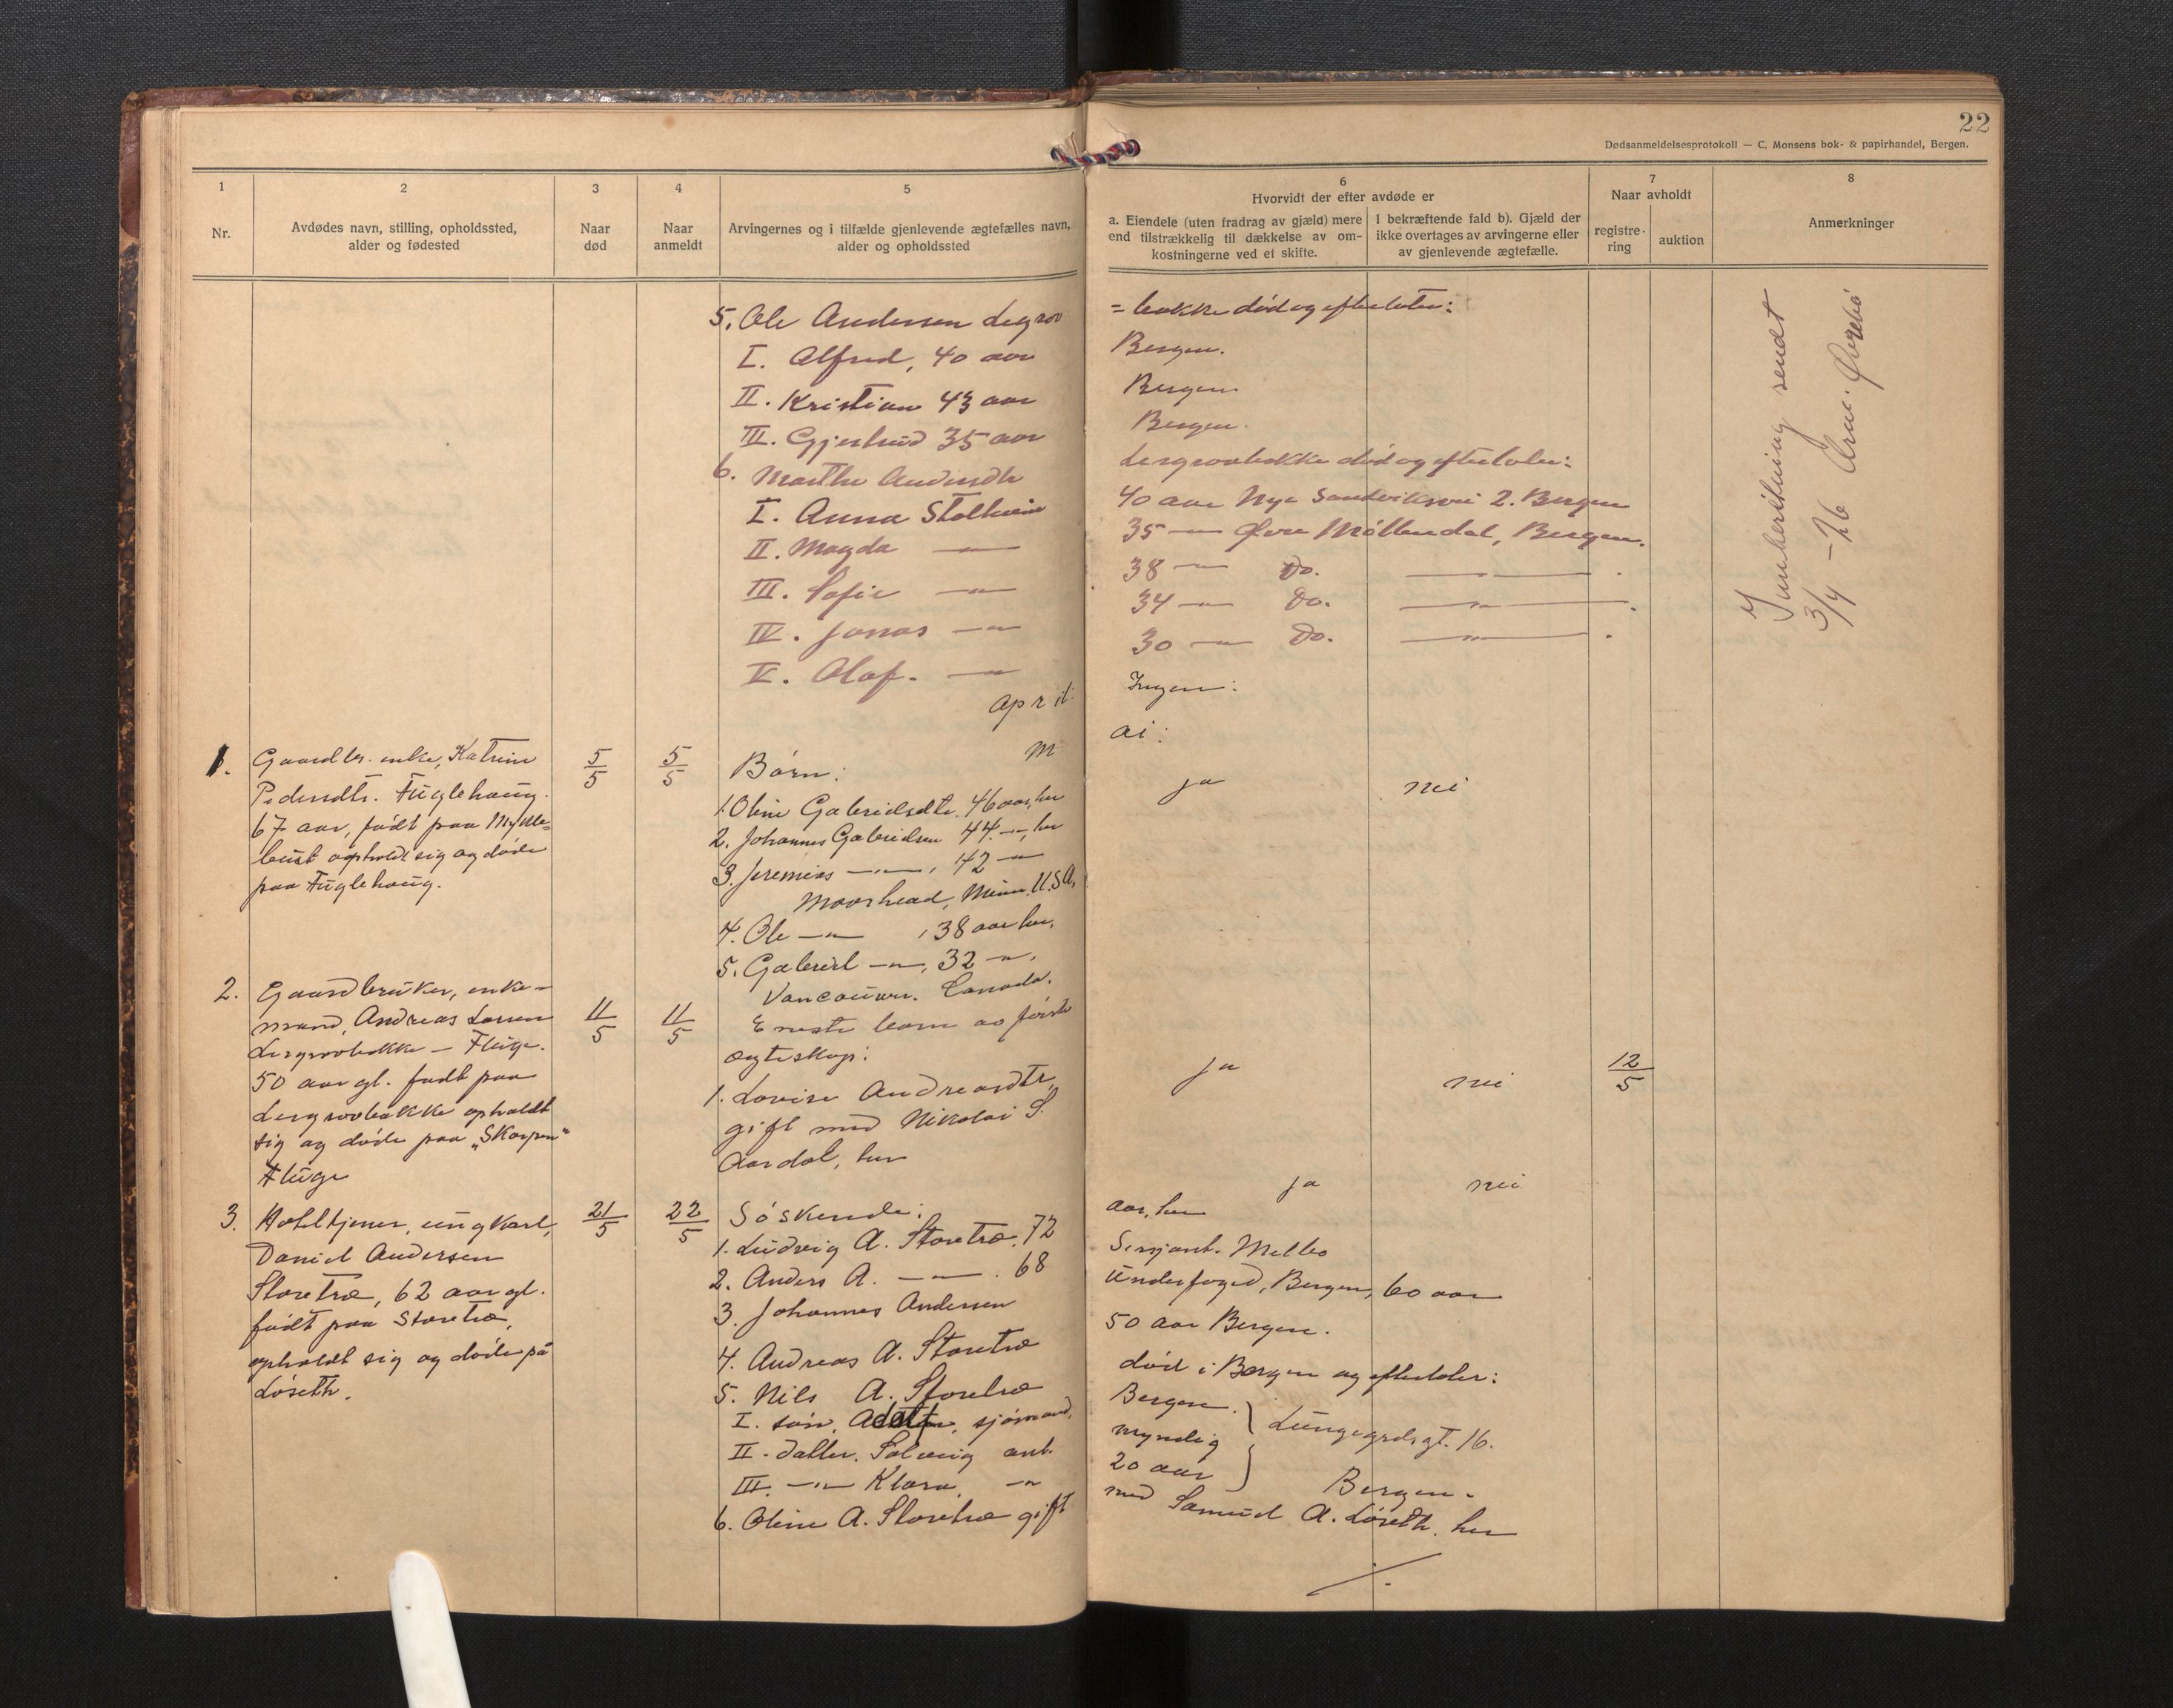 22
Dødsanmeldelsesprotokoll — C. Monsens bok- & papirhandel, Bergen.
1
2
3
4
5
6
7
8
Nr.
Avdødes navn, stilling, opholdssted,
alder og fødested
Naar
død
Naar
anmeldt
Arvingernes og i tilfælde gjenlevende ægtefælles navn,
alder og opholdssted
Hvorvidt der efter avdøde er
a. Eiendele (uten fradrag av gjæld) mere
end tilstrækkelig til dækkelse av om-
kostningerne ved et skifte.
i bekræftende fald b). Gjæld der
ikke overtages av arvingerne eller
av gjenlevende ægtefælle.
Naar avholdt
registre-
ring
auktion
Anmerkninger
5. Ole Andersen Legrov = bakke død og efterlater:
I. Alfred, 40 aar Bergen.
II. Kristian 43 aar Bergen.
III. Gjertrud 35 aar Bergen.
6. Marthe Andersdtr Lergrovbakke død og efterlater:
I. Anna Stølheim 40 aar Nye Sandviksvei 2. Bergen
II. Magda —"— 35 —"— Øvre Møllendal, Bergen.
III. Sofie —"— 38 —"— Do. —"—.
IV. Jonas —"— 34 —"— Do. —"—.
V. Olaf. —"— 30 —"— Do. —"—.
sendt
3/4 -26
April: Ingen:
Mai:
1. Gaardbr. enke, Katrine
Pedersdtr. Fuglehaug.
67 aar, født paa Mykle-
bust opholdt sig og døde
paa Fuglehaug.
5/5
5/5
Børn:
1. Oline Gabrielsdtr. 46 aar, her
2. Johannes Gabrielsen 44 —"—, her
3. Jeremias —"—, 42 —"—
Moorhead, Minn. U.S.A.
4. Ole —"—, 38 aar her.
5. Gabriel —"—, 32 —"—.
Vancouver. Canada.
ja nei
2. Gaardbruker, enke-
mand, Andreas Larsen
Lergrovbakke — Fluge.
50 aar gl. født paa
Lergrovbakke opholdt
sig og døde paa „Skarpen"
Fluge
11/5
11/5
Eneste barn av første
ægteskap:
1. Lovise Andreasdtr.
gift med Nikolai S.
Aardal, her
ja nei 12/5
3. Hoteltjener, ungkarl,
Daniel Andersen
Storetræ, 62 aar gl.
født paa Storetræ,
opholdt sig og døde på
Løseth.
21/5
22/5
ja nei
Søskende:
1. Ludvig A. Storetræ, 72 aar, her
2. Anders A. —"—. 68 Sersjant. Melbo
3. Johannes Andersen Underfoged, Bergen, 60 aar
4. Andreas A. Storetræ 50 aar Bergen.
5. Nils A. Storetræ død i Bergen og efterlater:
I. søn, Adolf, sjømand, Bergen.
II. datter. Solveig ant. myndig
III. —"— Klara, —"— 20 aar
Lungegrdsgt. 16.
Bergen.
6. Oline A. Storetræ gift med Samuel A. Løseth. her